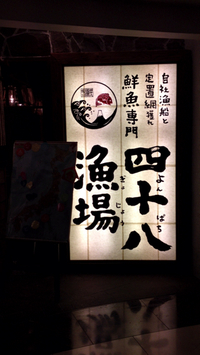 自社漁船と
定置網獲れ
鮮魚専門
四十八
よんぱち
漁場
ぎょじょう